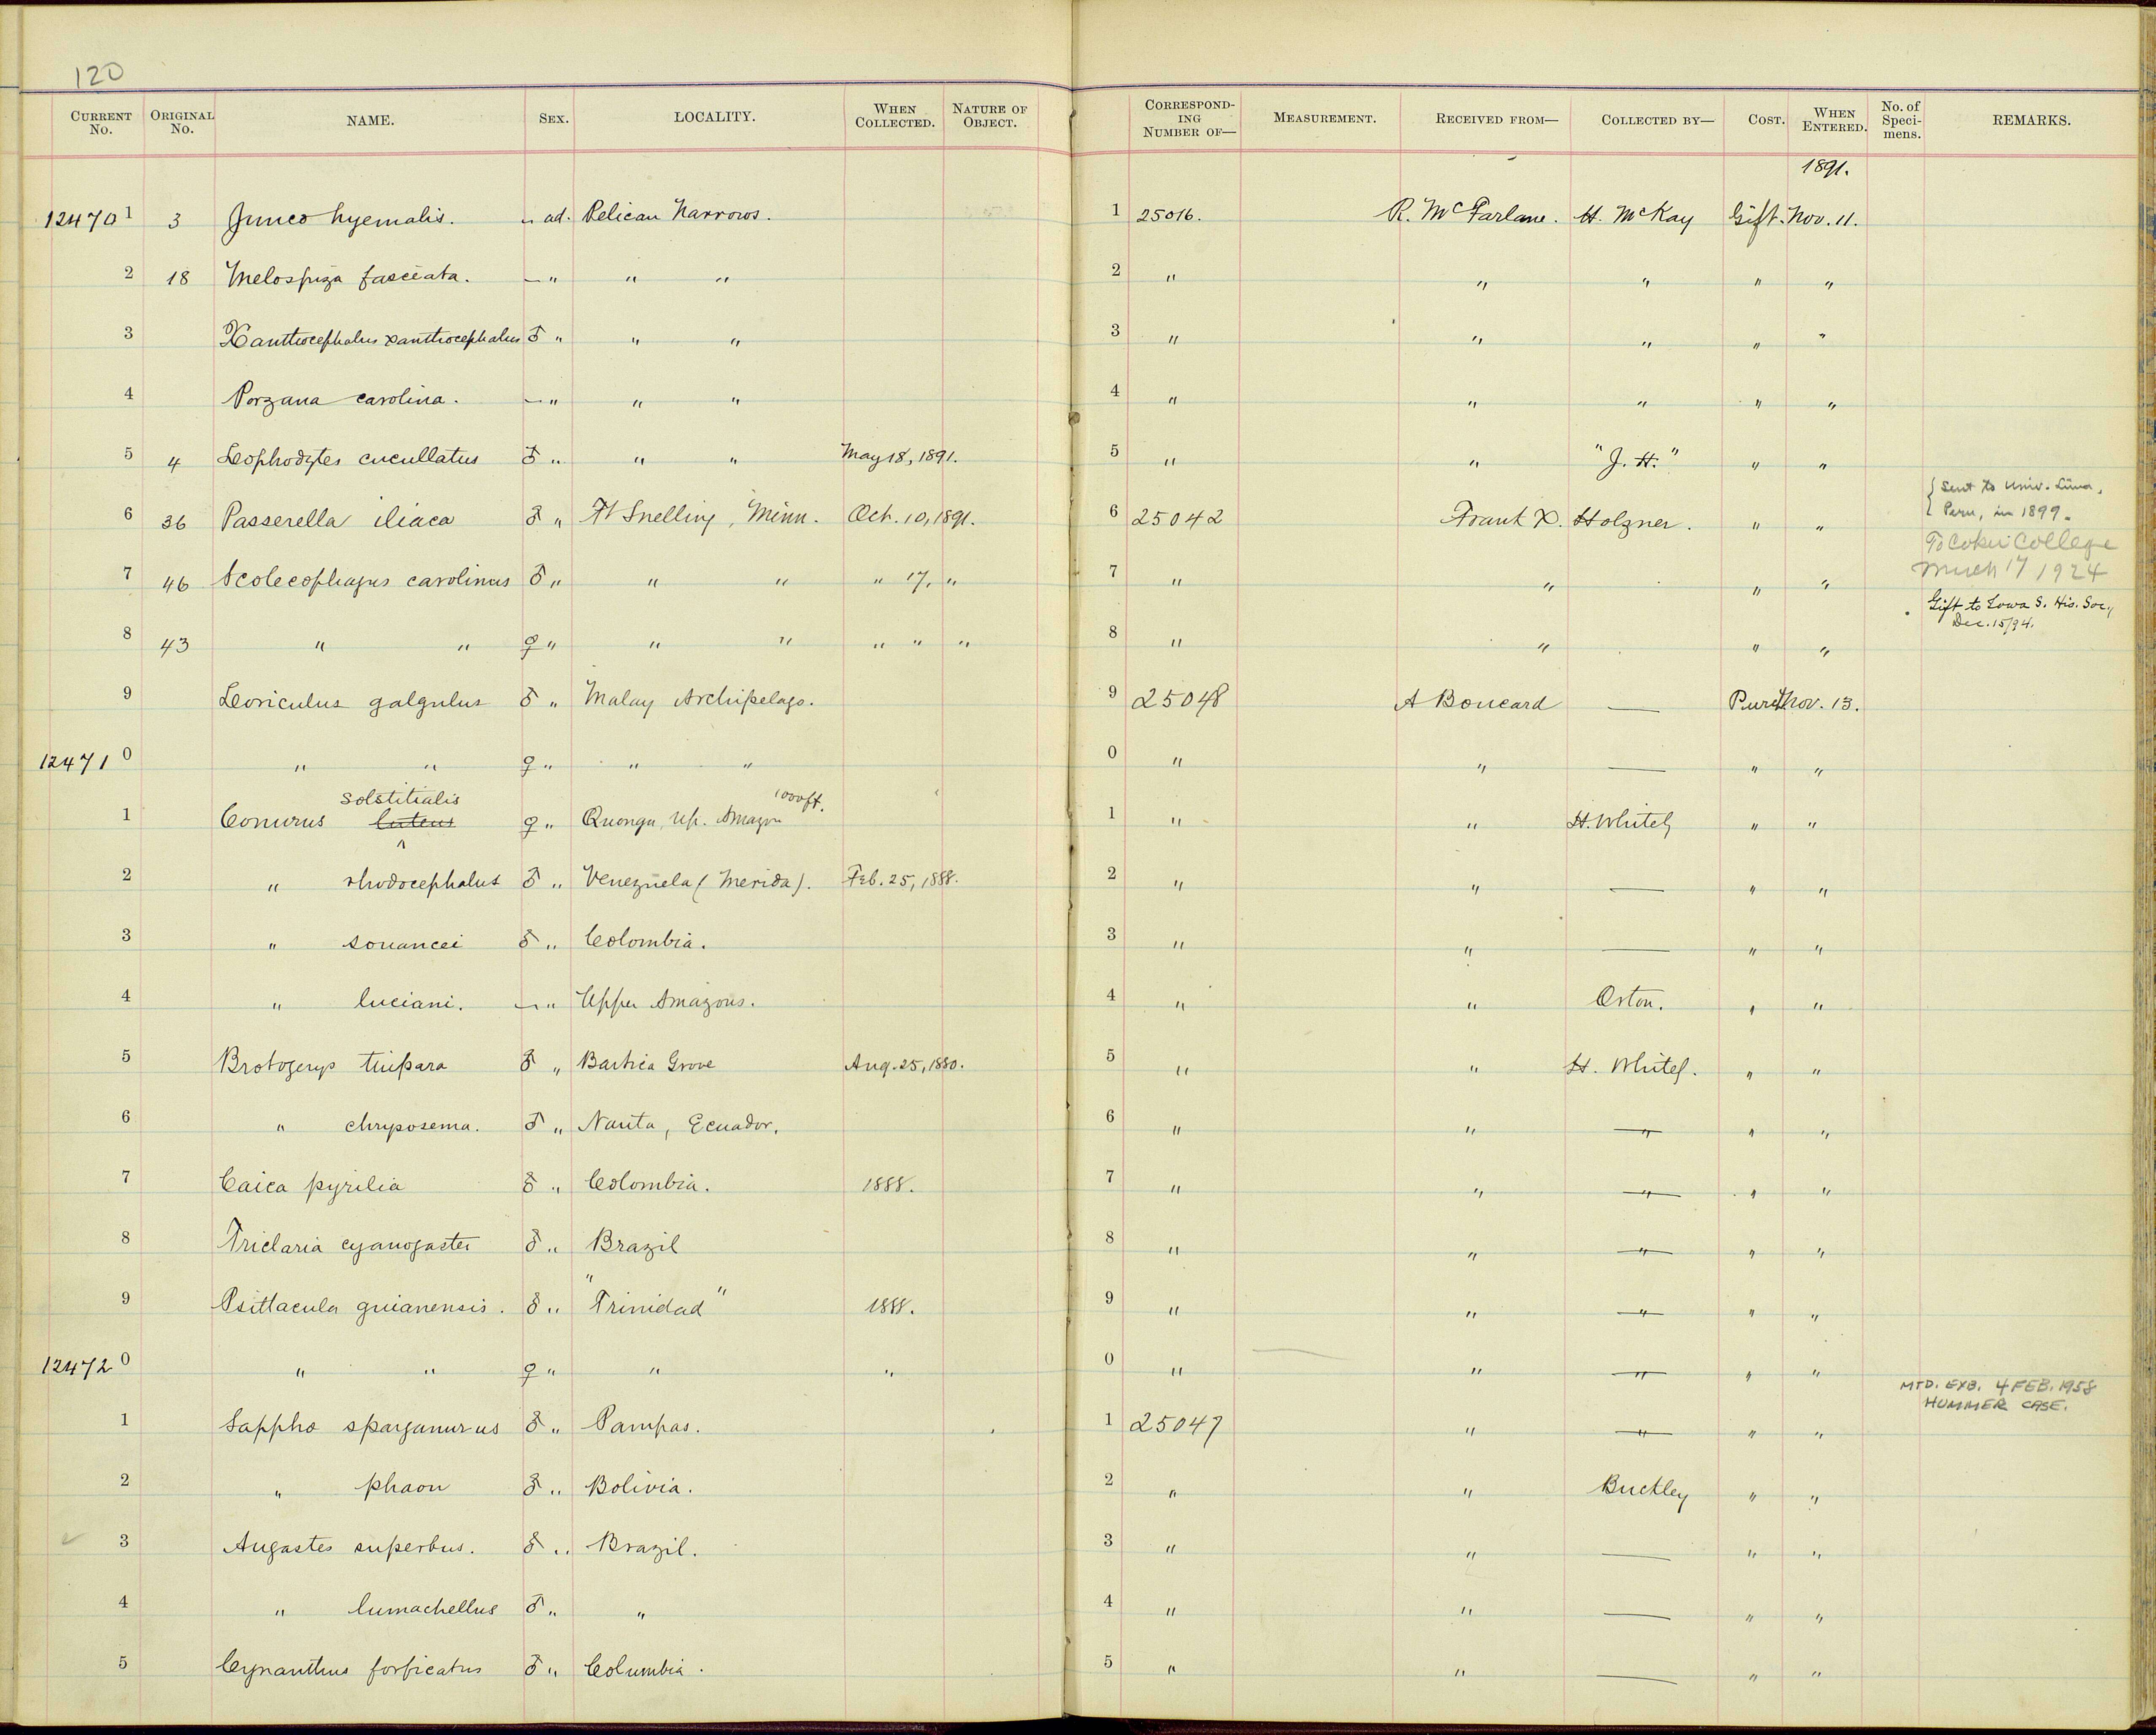 120
CURRENT No. ORIGINAL No. NAME. SEX. LOCALITY. WHEN COLLECTED. NATURE OF OBJECT. CORRESPONDING NUMBER OF— MEASUREMENT. RECEIVED FROM— COLLECTED BY— COST. WHEN ENTERED. No. of Specimens. REMARKS.
1891.
12470 1 3 Junco hyemalis. — ad. Pelican Narrows. 1 25016. R. McFarlane. H. McKay Gift. Nov. 11.
2 18 Melospiza fasciata. — " " " 2 " " " " "
3 Xanthocephalus xanthocephalus ♂ " " " 3 " " " " "
4 Porzana carolina. — " " " 4 " " " " "
5 4 Lophodytes cucullatus ♂ " " " May 18, 1891. 5 " " "J. H." " "
6 36 Passerella iliaca ♂ " Ft Snelling, Minn. Oct. 10, 1891. 6 25042 Frank X. Holzner. " " { Sent to Univ. Lima, Peru, in 1899.
To Coker College
March 17 1924
7 46 Scolecophagus carolinus ♂ " " " " 17, " 7 " " " "
Gift to Iowa S. His. Soc., Dec. 15/94.
8 43 " " ♀ " " " " " " 8 " " " "
9 Loriculus galgulus ♂ " Malay Archipelago. 9 25048 A Boucard — Purch Nov. 13.
12471 0 " " ♀ " " " 0 " " — " "
1 Conurus luteus solstitialis ♀ " Quonga, Up. Amazon 1000 ft. 1 " " H. Whitely " "
2 " rhodocephalus ♂ " Venezuela (Merida). Feb. 25, 1888. 2 " " — " "
3 " souancei ♂ " Colombia. 3 " " — " "
4 " luciani. — " Upper Amazons. 4 " " Orton. " "
5 Brotogerys tuipara ♂ " Bartica Grove Aug. 25, 1880. 5 " " H. Whitely. " "
6 " chrysosema. ♂ " Nauta, Ecuador. 6 " " — " "
7 Caica pyrilia ♂ " Colombia. 1888. 7 " " — " "
8 Triclaria cyanogaster ♂ " Brazil 8 " " — " "
9 Psittacula guianensis. ♂ " "Trinidad" 1888. 9 " " — " "
12472 0 " " ♀ " " " 0 " " — " "
MTD. EXB. 4 FEB. 1958
HUMMER CASE.
1 Sappho sparganurus ♂ " Pampas. 1 25047 " — " "
2 " phaon ♂ " Bolivia. 2 " " Buckley " "
3 Augastes superbus. ♂ " Brazil. 3 " " — " "
4 " lumachellus ♂ " " 4 " " — " "
5 Cynanthus forficatus ♂ " Columbia. 5 " " — " "